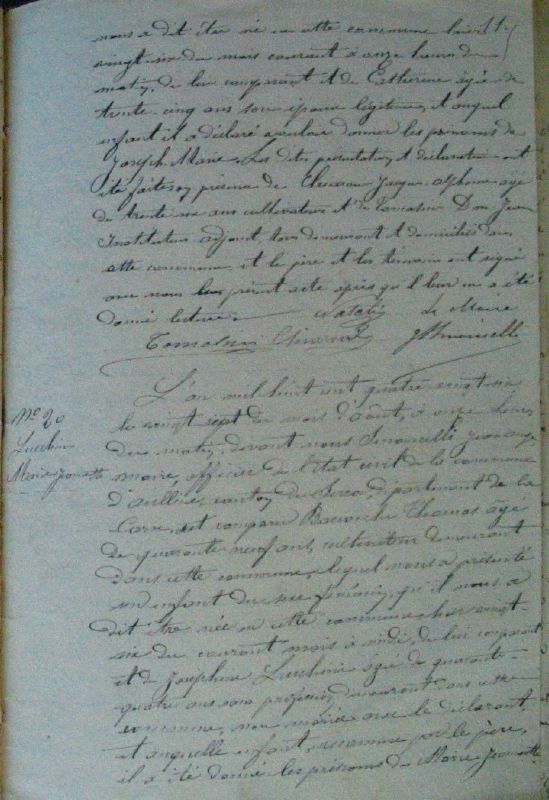 nous a dit être né en cette commune hier
vingt six du mois courant à onze heures du
matin, de lui comparant et de Catherine âgée de
trente cinq ans son épouse légitime, et auquel
enfant il a déclaré vouloir donner les prénoms de
Joseph Marie. Les dites présentation et déclaration ont
été faites en présence de Jacques Alphonse âgé
de trente ans cultivateur et de Tomasini Don Jean
Instituteur adjoint, tous demeurant et domiciliés dans
cette commune, et le père et les témoins ont signé
avec nous le présent acte après qu'il leur en a été
donné lecture.
Le Maire
Tomasini
L'an mil huit cent quatre vingt six
le vingt sept du mois d'août, à onze heures
du matin, devant nous
maire, officier de l'état civil de la commune
d'Aullène, canton de Serra, département de la
Corse, est comparu Thomas âgé
de quarante neuf ans, cultivateur demeurant
dans cette commune, lequel nous a présenté
un enfant du sexe féminin, qu'il nous a
dit être née en cette commune hier vingt-
six du courant mois à midi, de lui comparant
et de Joséphine Lucchini âgée de quarante-
quatre ans sans profession, demeurant dans cette
commune, non mariée avec le déclarant
et auquelle enfant, reconnue par le père,
il a été donné les prénoms de Marie Jeannette
No 20
Lucchini
Marie Jeannette